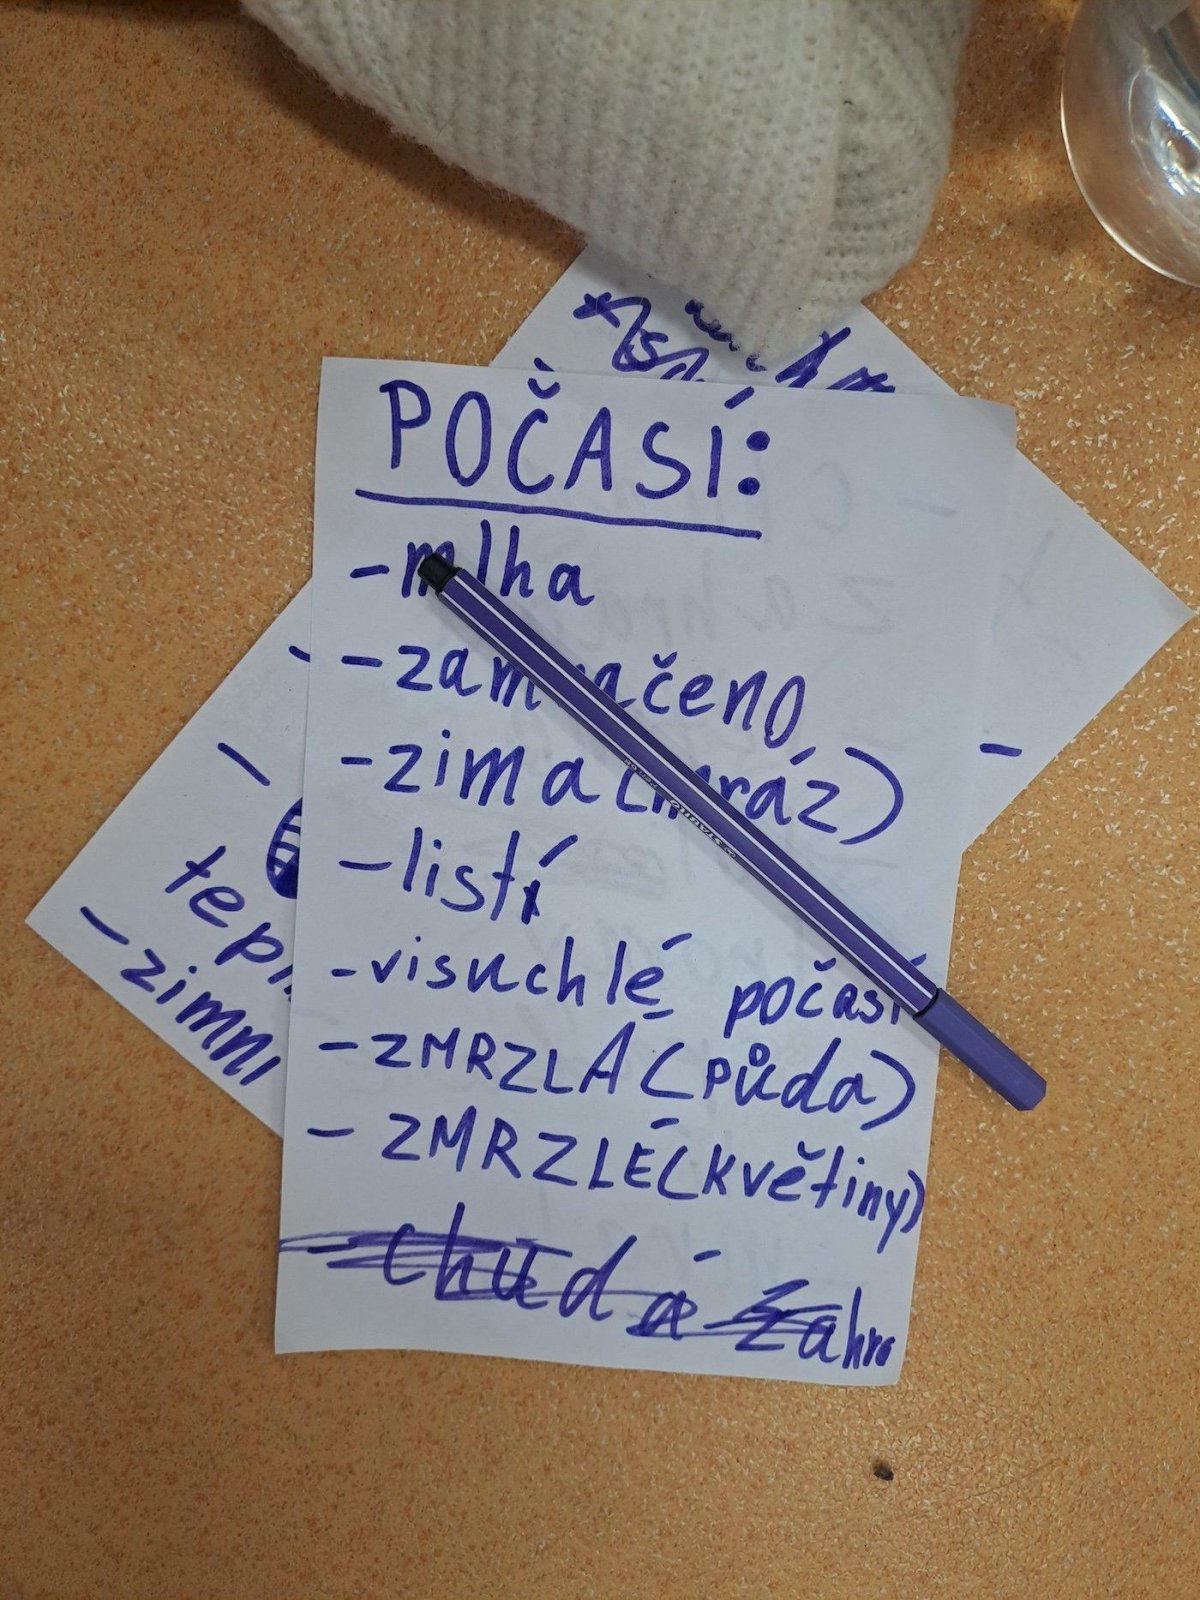 POČASÍ:
- mlha
- zamračeno
- zima (mráz)
- listí
- visuchlé počasí
- ZMRZLÁ (půda)
- ZMRZLÉ (květiny)
chudá zahra
- zimni